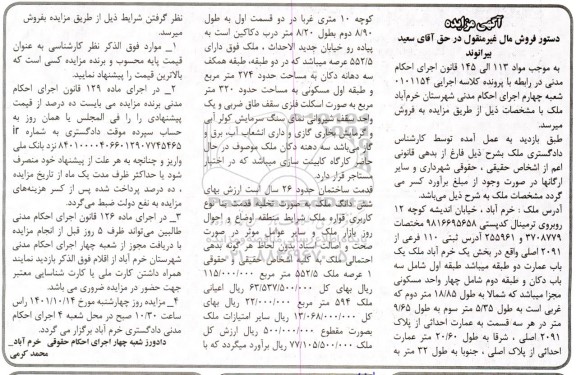 آگهی مزایده
دستور فروش مال غیرمنقول در حق آقای سعید
بیرانوند
به موجب مواد ۱۱۳ الی ۱۴۵ قانون اجرای احکام
مدنی در رابطه با پرونده کلاسه اجرایی ۰۱۰۱۱۵۴
شعبه چهارم اجرای احکام مدنی شهرستان خرم‌آباد
ملک با مشخصات ذیل از طریق مزایده به فروش
میرسد.
طبق بازدید به عمل آمده توسط کارشناس
دادگستری ملک بشرح ذیل فارغ از بدهی قانونی
اعم از اشخاص حقیقی ، حقوقی شهرداری و سایر
ارگانها در صورت وجود از مبلغ برآورد کسر می
گردد مشخصات ملک به شرح ذیل می‌باشد.
آدرس ملک : خرم آباد ، خیابان اندیشه کوچه ۱۲
روبروی ترمینال کدپستی ۹۸۱۶۶۹۵۶۵۸ مختصات
۳۷۰۸۷۷۹ و ۲۵۵۹۶۱ آدرس ثبتی ۱۱۰ فرعی از
۲۰۹۱ اصلی واقع در بخش یک خرم آباد ملک یک
باب عمارت دو طبقه میباشد طبقه اول شامل سه
باب دکان و طبقه دوم شامل چهار واحد مسکونی
مجزا میباشد که شمالا به طول ۱۸/۸۵ متر دوم که
غربی است به طول ۵/۳۵ متر سوم به طول ۹/۶۵
متر در هر سه قسمت به عمارت احداثی از پلاک
۲۰۹۱ اصلی ، شرقا به طول ۲۰/۶۰ متر عمارت
احداثی از پلاک اصلی ، جنوبا به طول ۳۲ متر به
کوچه ۱۰ متری غربا در دو قسمت اول به طول
۸/۹۰ دوم بطول ۸/۲۰ متر درب دکاکین است به
پیاده رو خیابان جدید الاحداث ، ملک فوق دارای
۵۵۲/۵ عرصه میباشد که در دو طبقه، طبقه همکف
سه دهانه دکان به مساحت حدود ۲۷۴ متر مربع
و طبقه اول مسکونی به مساحت حدود ۳۲۰ متر
مربع به صورت اسکلت فلزی سقف طاق ضربی و یک
واحد سقف شیروانی نمای سنگ سرمایش کولر آبی
و گرمایش بخاری گازی و دارای انشعاب آب، برق و
گاز می‌باشد سه دهنه دکان ملک موصوف در حال
حاضر کارگاه کابینت سازی میباشد که در اختیار
مستاجر قرار دارد.
قدمت ساختمان حدود ۲۶ سال است ارزش بهای
شش دانگ ملک به صورت تخلیه قدمت بنا نوع
کاربری قواره ملک شرایط منطقه اوضاع و احوال
روز بازار ملک و سایر عوامل موثر در صورت
صحت و اصالت اسناد بدون لحاظ هر گونه بدهی
احتمالی ملک به کلیه اشخاص حقیقی و حقوقی
۱ عرصه ملک ۵۵۲/۵ متر مربع ۱۱۵/۰۰۰/۰۰۰
ریال بهای کل ۶۳/۵۳۷/۵۰۰/۰۰۰ ریال اعیانی
ملک ۵۹۴ متر مربع ۲۲/۰۰۰/۰۰۰ ریال بهای
کل ۱۳/۰۶۸/۰۰۰/۰۰۰ ریال سایر امتیازات ملک
بصورت مقطوع ۵۰۰/۰۰۰/۰۰۰ ریال ارزش کل
ملک ۷۷/۱۰۵/۵۰۰/۰۰۰ ریال برآورد میگردد که با
نظر گرفتن شرایط ذیل از طریق مزایده بفروش
میرسد.
۱_ موارد فوق الذکر نظر کارشناسی به عنوان
قیمت پایه محسوب و برنده مزایده کسی است که
بالاترین قیمت را پیشنهاد نمایید.
۲_ در اجرای ماده ۱۲۹ قانون اجرای احکام
مدنی برنده مزایده می بایست ده درصد از قیمت
پیشنهادی را را فی المجلس یا همان روز به
حساب سپرده موقت دادگستری به شماره ir
۸۴۰۱۰۰۰۰۴۰۶۶۰۱۲۹۰۷۷۴۵۴۶۵ نزد بانک ملی
واریز و چنانچه به هر علت از پیشنهاد خود منصرف
شود یا حداکثر ظرف مدت یک ماه از تاریخ مزایده
، ده درصد پرداخت شده پس از کسر هزینه‌های
مزایده به نفع دولت ضبط می‌گردد.
۳_ در اجرای ماده ۱۲۶ قانون اجرای احکام مدنی
طالبین می‌تواند ظرف ۵ روز قبل از انجام مزایده
با دریافت مجوز از شعبه چهار اجرای احکام مدنی
شهرستان خرم آباد از اقلام فوق الذکر بازدید نمایند
همراه داشتن کارت ملی یا کارت شناسایی معتبر
جهت حضور در مزایده ضروری می باشد.
۴_ مزایده روز چهارشنبه مورخ ۱۴۰۱/۱۰/۱۴ راس
ساعت ۱۰/۳۰ صبح در محل شعبه ۴ اجرای احکام
مدنی دادگستری خرم آباد برگزار می گردد.
دادورز شعبه چهار اجرای احکام حقوقی خرم آباد_
محمد کرمی